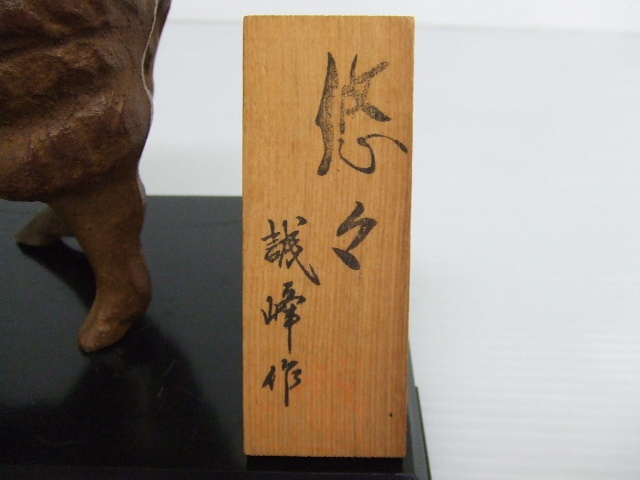 悠々
誠峰作